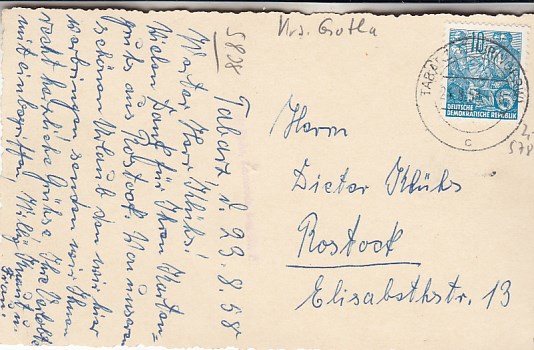 Krs. Gotha
5828
Tabarz, d. 23. 8. 58
Werter Herr Klühs!
Vielen Dank für Ihren Karten=
gruß aus Rostock. Von unserem
schönen Urlaub den wir hier
verbringen senden wir Ihnen
recht herzliche Grüße. Ihre Verlobte
mit einbegriffen. Willy u.
Frau.
TABARZ
10
5
DEUTSCHE
DEMOKRATISCHE REPUBLIK
c
2,-
578
Herrn
Dieter Klühs
Rostock
Elisabethstr. 13